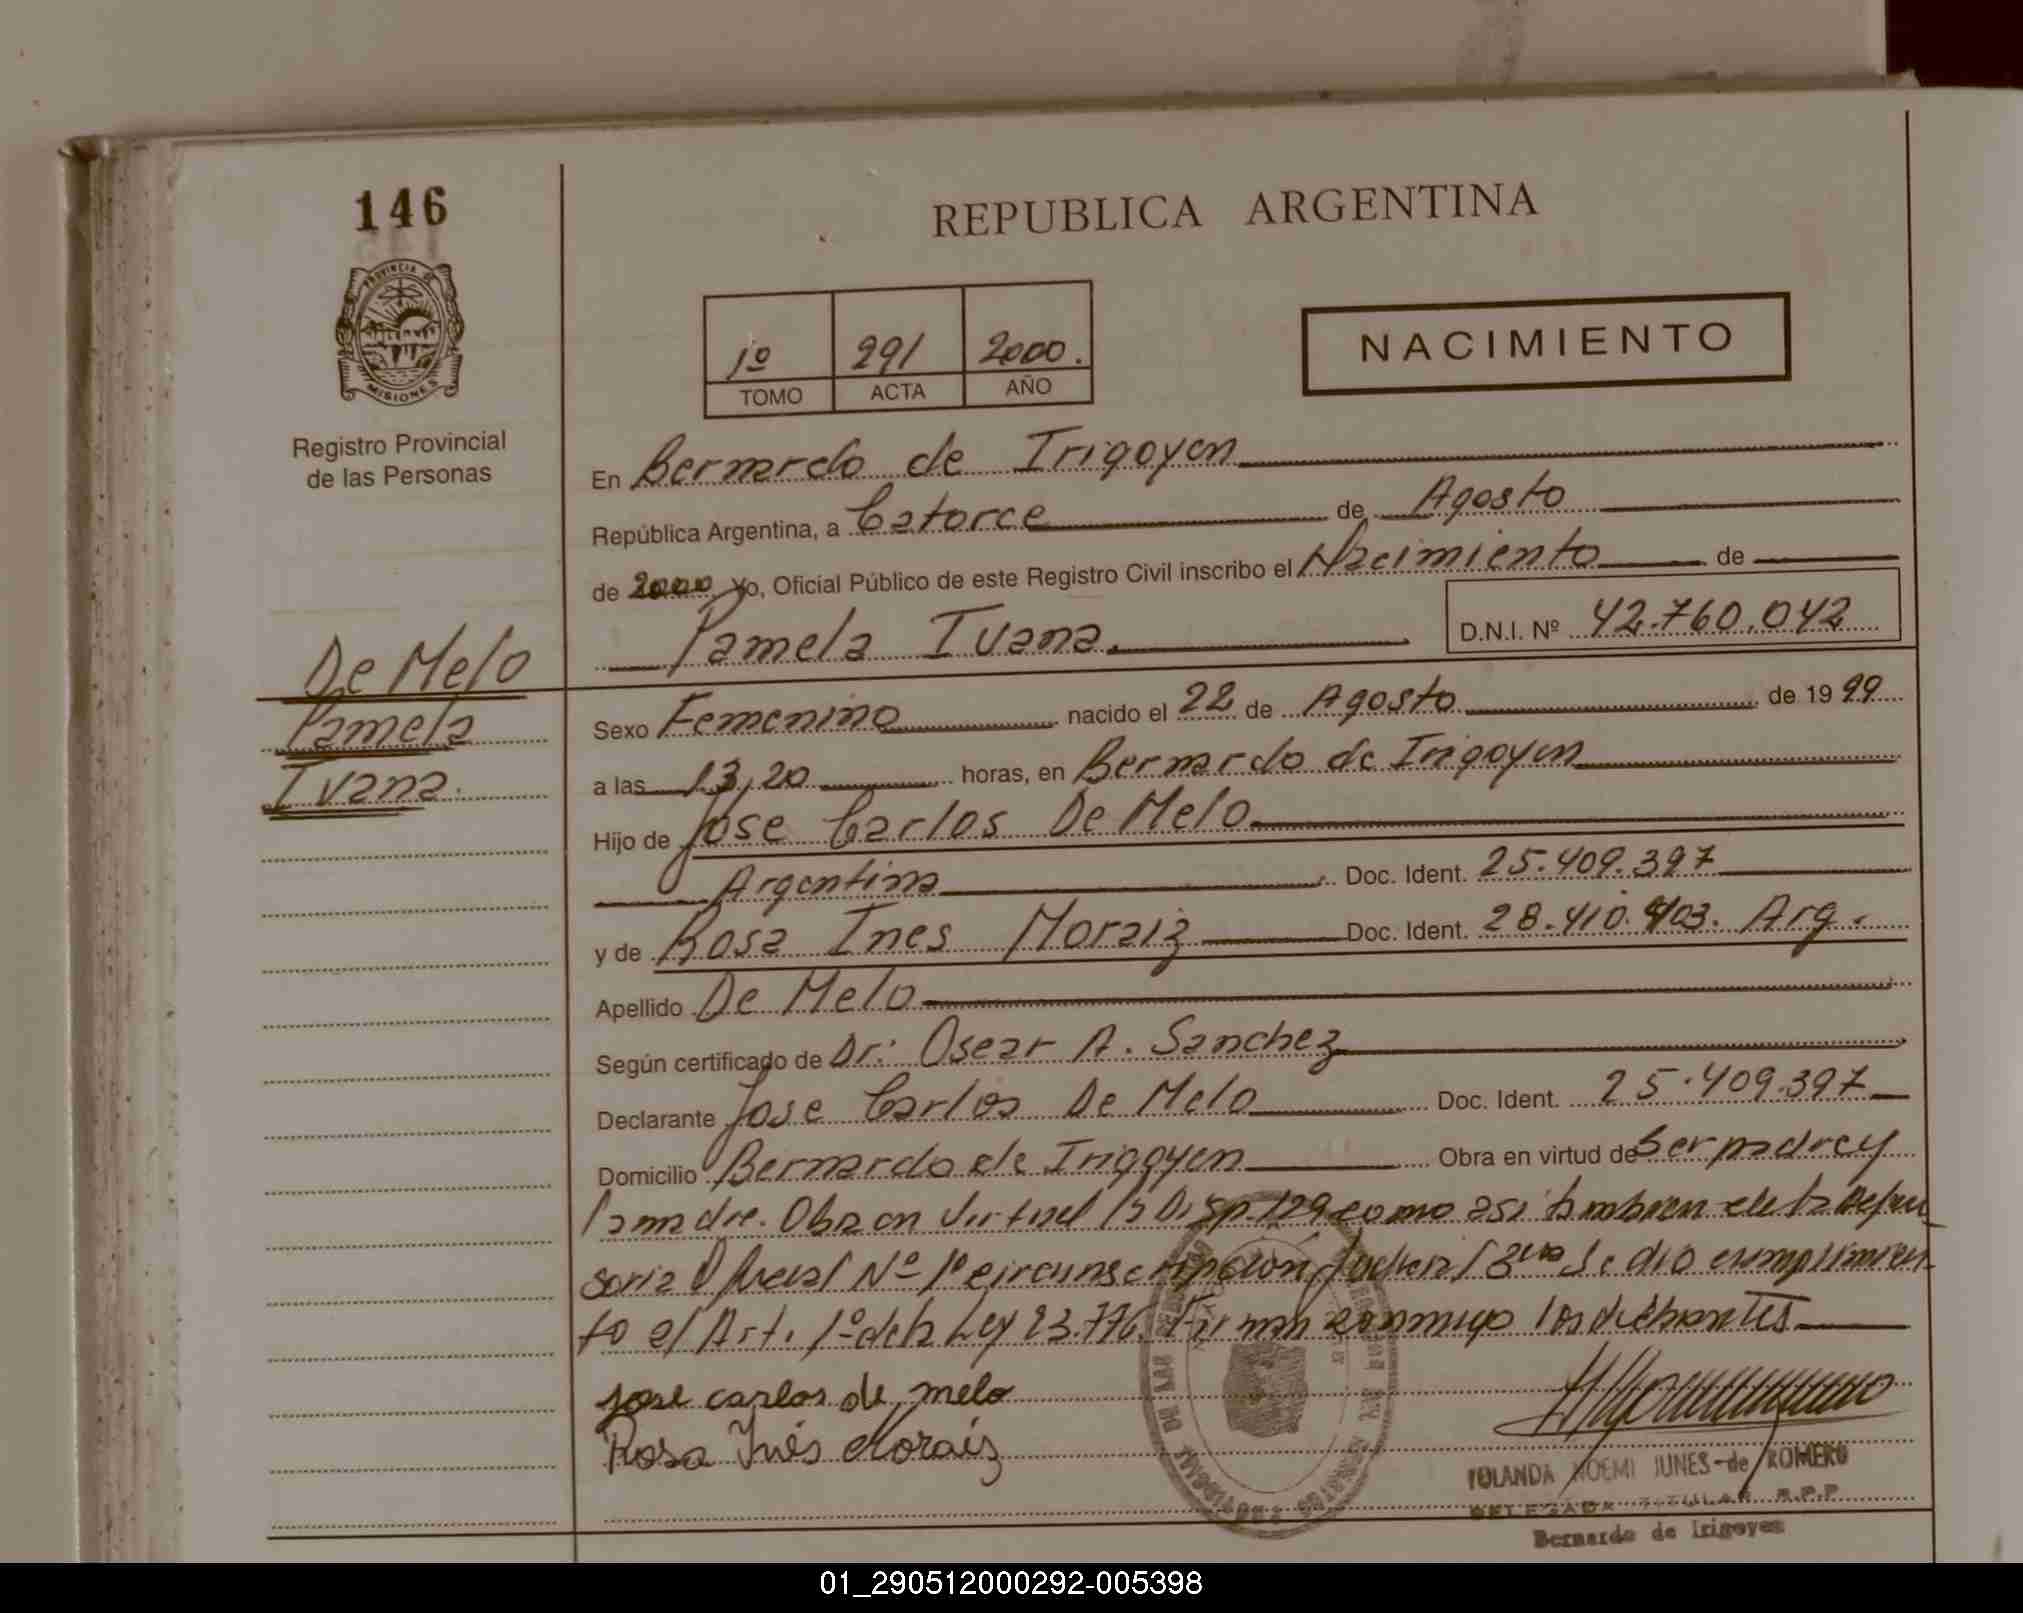 146
REPUBLICA ARGENTINA
PROVINCIA DE
MISIONES
1º 291 2000.
TOMO ACTA AÑO
NACIMIENTO
Registro Provincial
de las Personas
En Bernardo de Irigoyen
República Argentina, a Catorce de Agosto
de 2000 Yo, Oficial Público de este Registro Civil inscribo el Nacimiento de
Pamela Ivana. D.N.I. Nº 42.760.042
De Melo
Pamela
Ivana.
Sexo Femenino nacido el 22 de Agosto de 1999
a las 13,20 horas, en Bernardo de Irigoyen
Hijo de Jose Carlos De Melo
Argentina Doc. Ident. 25.409.397
y de Rosa Ines Moraiz Doc. Ident. 28.410.403. Arg.
Apellido De Melo
Según certificado de Dr: Oscar A. Sanchez
Declarante Jose Carlos De Melo Doc. Ident. 25.409.397
Domicilio Bernardo de Irigoyen Obra en virtud de Ser padre y
la madre. Obra en virtud la Disp. 129 como asi tambien de la Defen
soria Oficial Nº 1º circunscripción Judicial Se dio cumplimien
to el Art. 1º de la Ley 23.776. Firman conmigo los
jose carlos de melo
Rosa Inés Moraiz
YOLANDA NOEMI JUNES de ROMERO
DELEGADA TITULAR R.P.P
Bernardo de Irigoyen
01_290512000292-005398